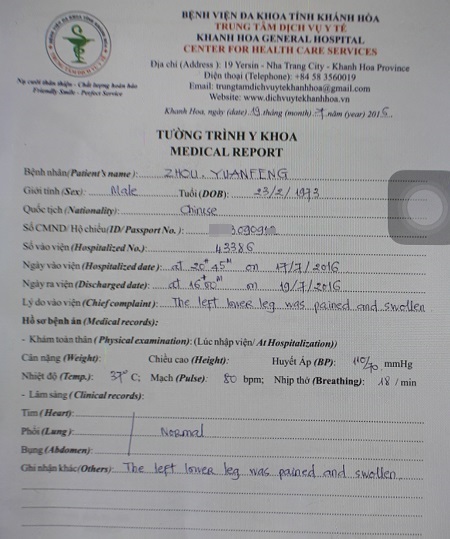 BỆNH VIỆN ĐA KHOA TỈNH KHÁNH HÒA
TRUNG TÂM DỊCH VỤ Y TẾ
KHANH HOA GENERAL HOSPITAL
CENTER FOR HEALTH CARE SERVICES
Nụ cười thân thiện - Chất lượng hoàn hảo
Friendly Smile - Perfect Service
Địa chỉ (Address ): 19 Yersin - Nha Trang City - Khanh Hoa Province
Điện thoại (Telephone): +84 58 3560019
Email: trungtamdichvuytekhanhhoa@gmail.com
Website: www.dichvuytekhanhhoa.vn
Khanh Hoa, ngày (date) 19 tháng (month) 7 năm (year) 2016
TƯỜNG TRÌNH Y KHOA
MEDICAL REPORT
Bệnh nhân(Patient's name): ZHOU. YUANFENG
Giới tính (Sex): Male Tuổi (DOB): 23/2/1973
Quốc tịch (Nationality): Chinese
Số CMND/ Hộ chiếu(ID/ Passport No.):
Số vào viện (Hospitalized No.): 43386
Ngày vào viện (Hospitalized date): at 20h 45m on 17/7/2016
Ngày ra viện (Discharged date): at 16h 00m on 19/7/2016
Lý do vào viện (Chief complaint): The left lower leg was pained and swollen
Hồ sơ bệnh án (Medical records):
- Khám toàn thân ( Physical examination): (Lúc nhập viện/ At Hospitalization))
Cân nặng (Weight): Chiều cao (Height): Huyết Áp (BP): 110/70 mmHg
Nhiệt độ (Temp.): 37° C; Mạch (Pulse): 80 bpm; Nhịp thở (Breathing): 18 / min
- Lâm sàng ( Clinical records):
Tim (Heart):
Phổi (Lung): Normal
Bụng (Abdomen):
Ghi nhận khác(Others): The left lower leg was pained and swollen